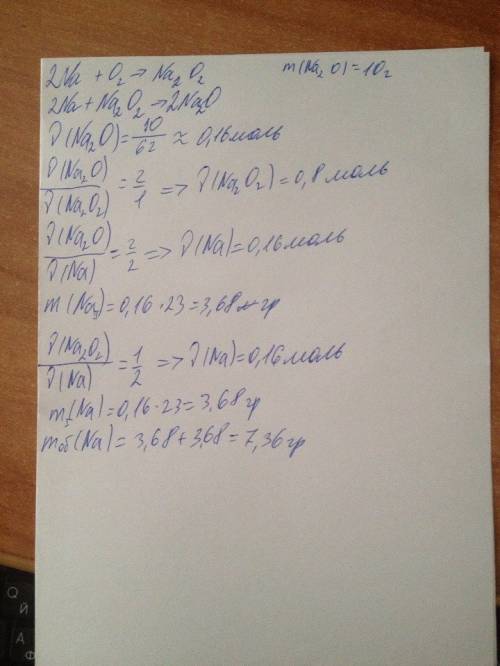 2Na + O₂ → Na₂O₂ m(Na₂O)=10г
2Na + Na₂O₂ → 2Na₂O
ν(Na₂O)=10/62 ≈ 0,16моль
ν(Na₂O)/ν(Na₂O₂) = 2/1 => ν(Na₂O₂)=0,8моль
ν(Na₂O)/ν(Na) = 2/2 => ν(Na)=0,16моль
m(Na)=0,16·23=3,68гр
ν(Na₂O₂)/ν(Na) = 1/2 => ν(Na)=0,16моль
m₁(Na)=0,16·23=3,68гр
mоб(Na)=3,68+3,68=7,36гр
Q
Й
A
Ф